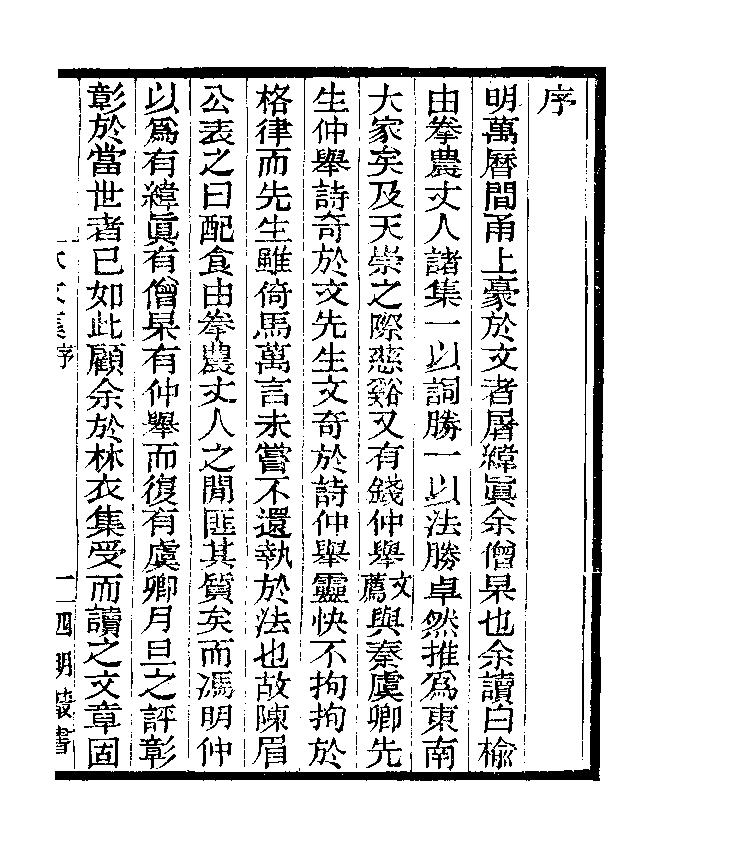 序
明萬曆間甬上豪於文者屠緯眞余僧杲也余讀白榆
由拳農丈人諸集一以詞勝一以法勝卓然推爲東南
大家矣及天崇之際慈谿又有錢仲舉文薦與秦虞卿先
生仲舉詩奇於文先生文奇於詩仲舉靈快不拘拘於
格律而先生雖倚馬萬言未嘗不還執於法也故陳眉
公表之曰配食由拳農丈人之閒匪其質矣而馮明仲
以爲有緯眞有僧杲有仲舉而復有虞卿月旦之評彰
彰於當世者已如此顧余於林衣集受而讀之文章固
衣集序
一四明叢書